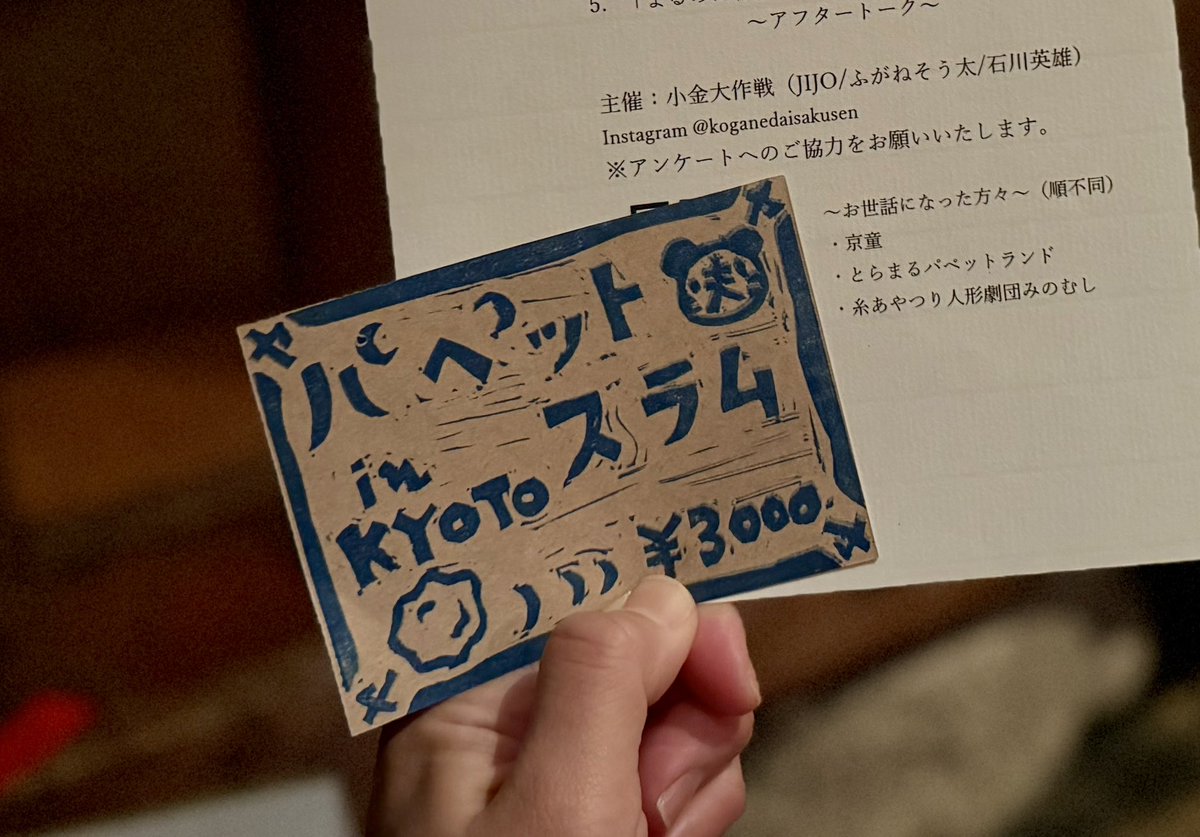 5.
～アフタートーク～
主催：小金大作戦（JIJO/ふがねそう太/石川英雄）
Instagram @koganedaisakusen
※アンケートへのご協力をお願いいたします。
～お世話になった方々～（順不同）
・京童
・とらまるパペットランド
・糸あやつり人形劇団みのむし
パペット
スラム
in
KYOTO
¥3000